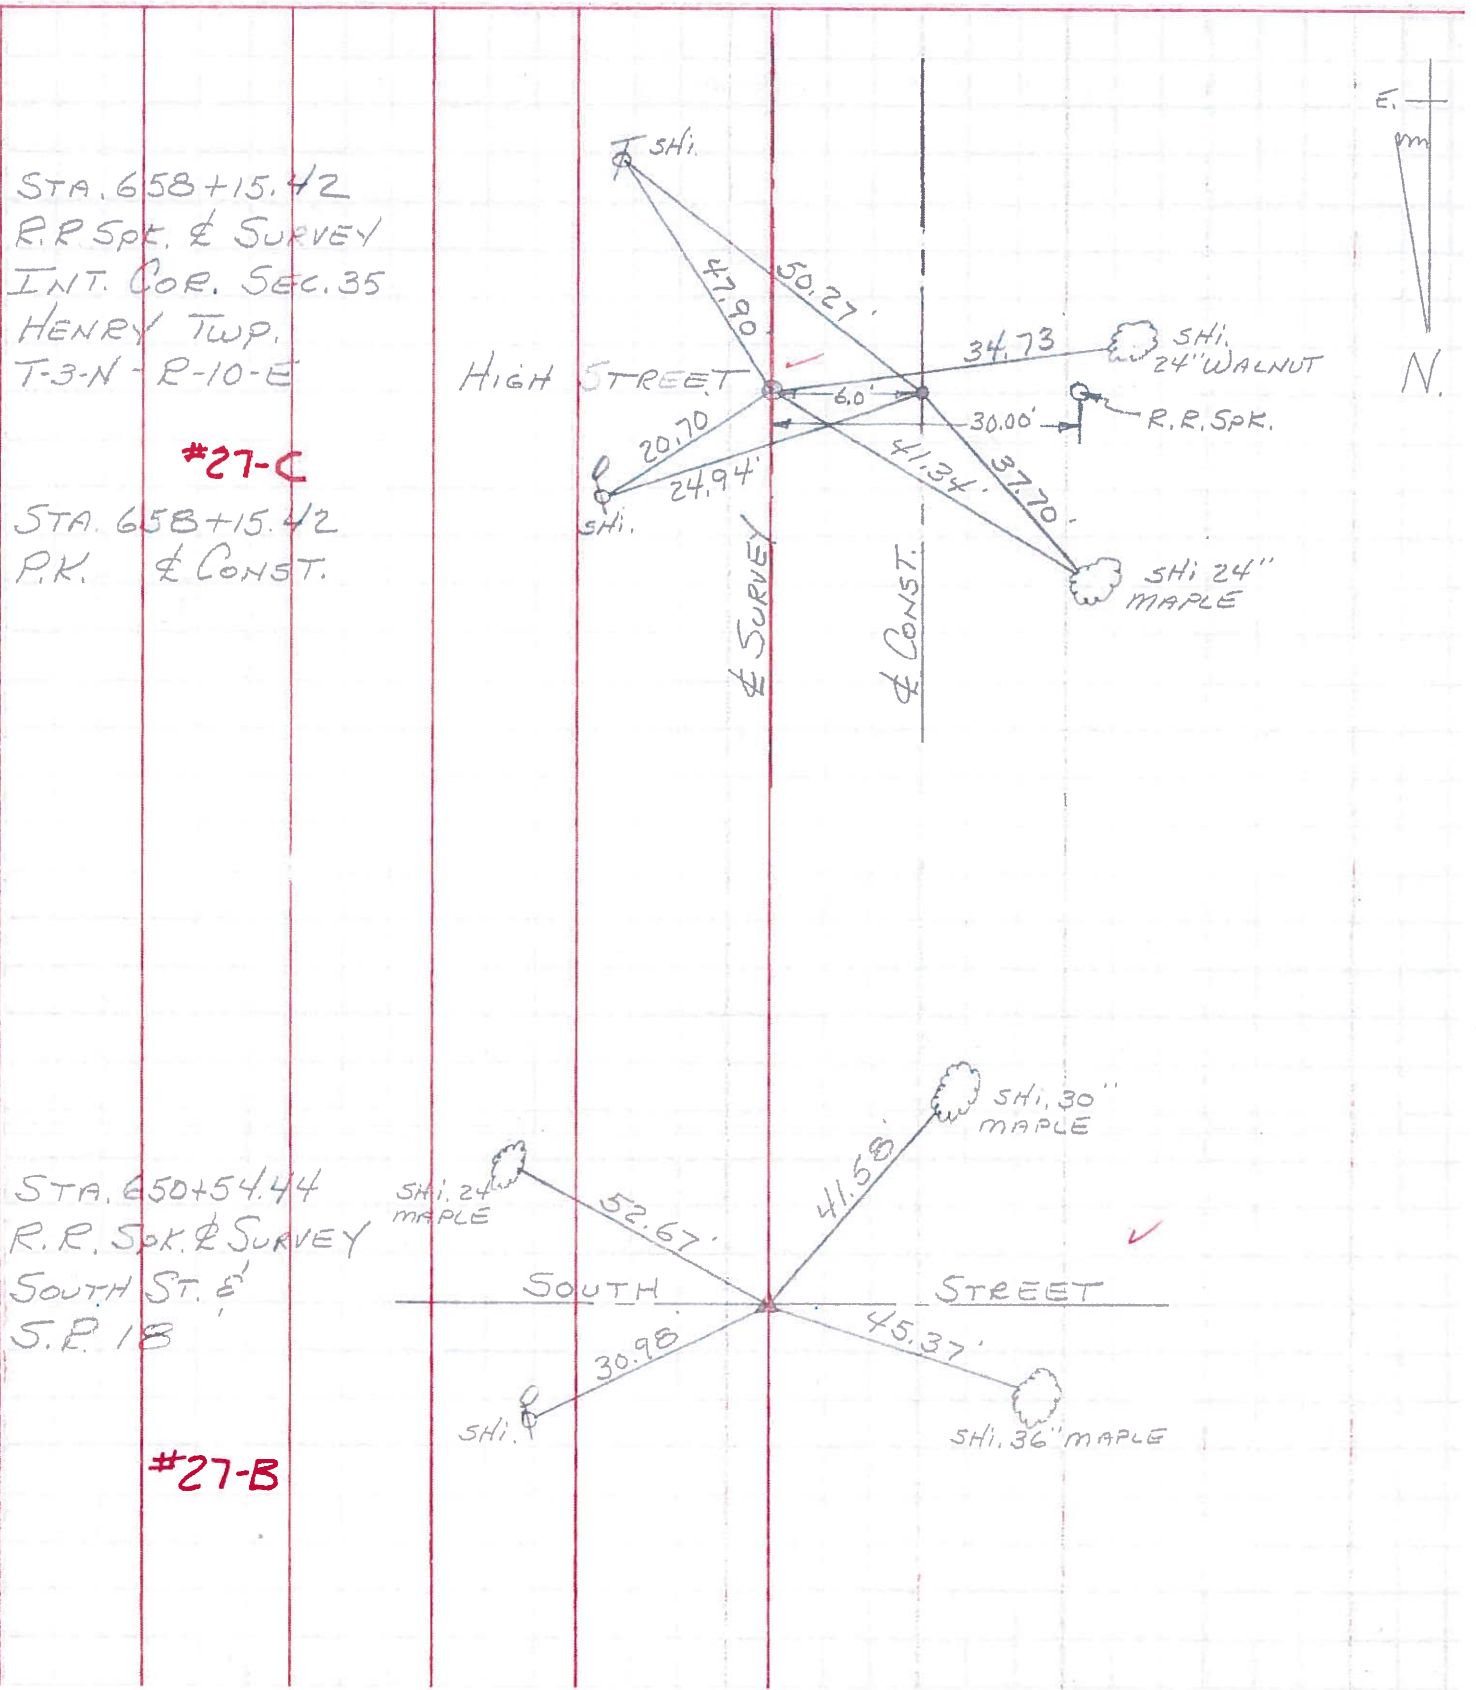 E.
N.
STA. 658+15.42
R.R. SPK. ℄ SURVEY
INT. COR. SEC. 35
HENRY TWP.
T-3-N - R-10-E
#27-C
STA. 658+15.42
P.K. ℄ CONST.
SHi.
47.90'
50.27'
34.73
SHi.
24" WALNUT
HIGH STREET
6.0'
30.00'
R.R. SPK.
20.70
24.94'
41.34'
37.70'
SHi.
SHi 24"
MAPLE
℄ SURVEY
℄ CONST.
SHi. 30"
MAPLE
STA. 650+54.44
R.R. SPK. ℄ SURVEY
SOUTH ST. &
S.R. 18
#27-B
SHi. 24"
MAPLE
52.67'
41.58'
SOUTH STREET
30.98'
45.37'
SHi.
SHi. 36" MAPLE